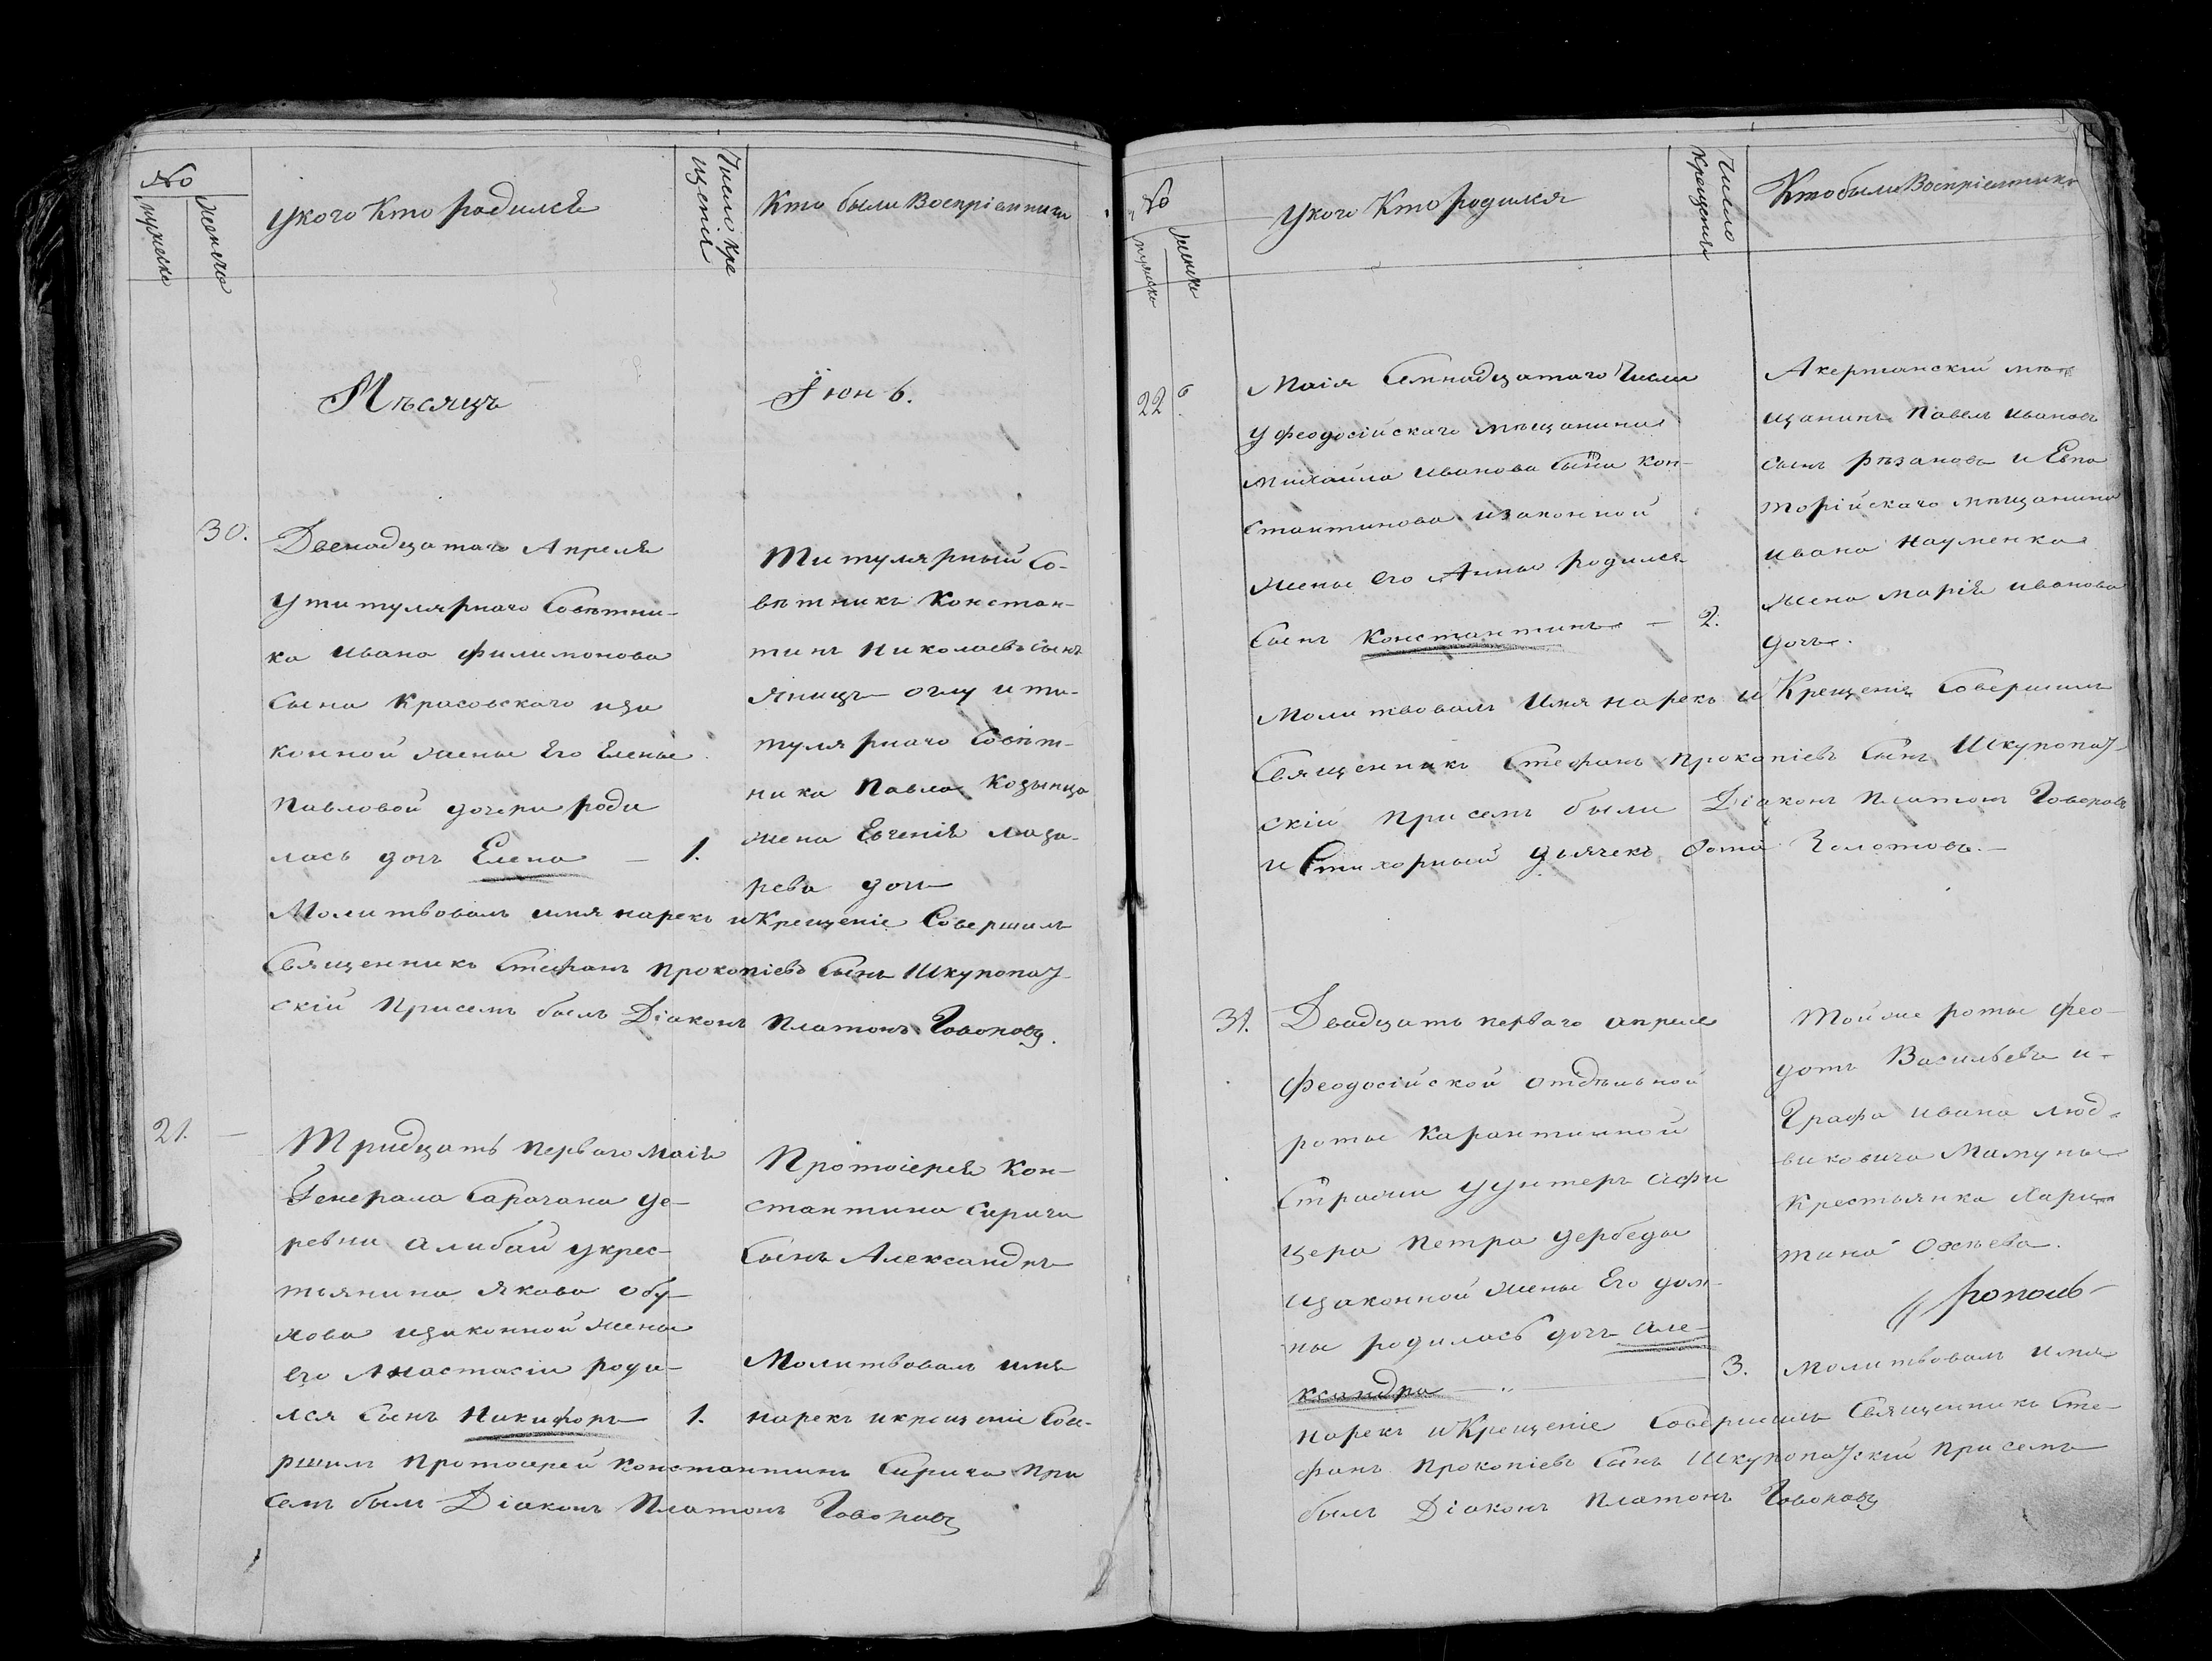 №
мужеска
женска
У кого Кто родился
Число Кре
щенія
Кто были Воспріемники
Мѣсяцъ
Іюнь.
30.
Двенадцатаго Апреля
У титулярнаго Совѣтни-
ка Ивана Филимонова
Сына Красовскаго иза
конной жены Его Елены
Павловой дочери роди
лась дочь Елена — 1.
Титулярный Со-
вѣтникъ Констан-
тинъ Николаевъ сынъ
оглу и ти-
тулярнаго Совѣт-
ника Павла
жена Евгенія Лаза-
рева дочь
Молитвовалъ имя нарекъ и Крещеніе Совершилъ
Священникъ Стефанъ Прокопіевъ Сынъ
скій При семъ былъ Діаконъ Платонъ Говоровъ.
21. —
Тридцать перваго Маія
Генерала де-
ревни Алибай у крес-
тьянина Якова Обу-
хова изаконной жены
его Анастасіи роди-
лся Сынъ Никифоръ 1.
Протоіерея Кон-
стантина Сирича
Сынъ Александръ
Молитвовалъ имя
нарекъ и крещеніе Сов-
ршилъ Протоіерей Константинъ Сирича При
семъ былъ Діаконъ Платонъ Говоровъ
№
мужска
женска
У кого Кто родился
Число
Крещенія
Кто были Воспріемники
22
Маія Семнадцатаго Числа
У феодосійскаго мѣщанина
Михаила Иванова Сына Кон-
стантинова изаконной
жены его Анны родился
Сынъ Константинъ — 2.
Акерманскій мѣ-
щанинъ Павелъ Ивановъ
сынъ Рѣзановъ и Евпа
торійскаго мѣщанина
Ивана Науменка
жена Марія Иванова
дочь.
Молитвовалъ Имя нарекъ и Крещеніе Совершилъ
Священникъ Стефанъ Прокопіевъ Сынъ
скій при семъ были Діаконъ Платонъ Говоровъ
и Стихорный дьячекъ Фома Золотовъ.—
31.
Двадцать перваго апреля
Феодосійской отдѣльной
роты Карантинной
Стражи у унтеръ афи
цера Петра Дербеды
изаконной жены Его Дом-
ны родилась дочь Але-
ксандра — 3.
Той же роты Фео-
дотъ Васильевъ и
Графа Ивана Люд-
виковича Мамуны
Крестьянка Хари
тина
Молитвовалъ имя
нарекъ и Крещеніе Совершилъ Священникъ Сте-
фанъ Прокопіевъ Сынъ при семъ
былъ Діаконъ Платонъ Говоровъ